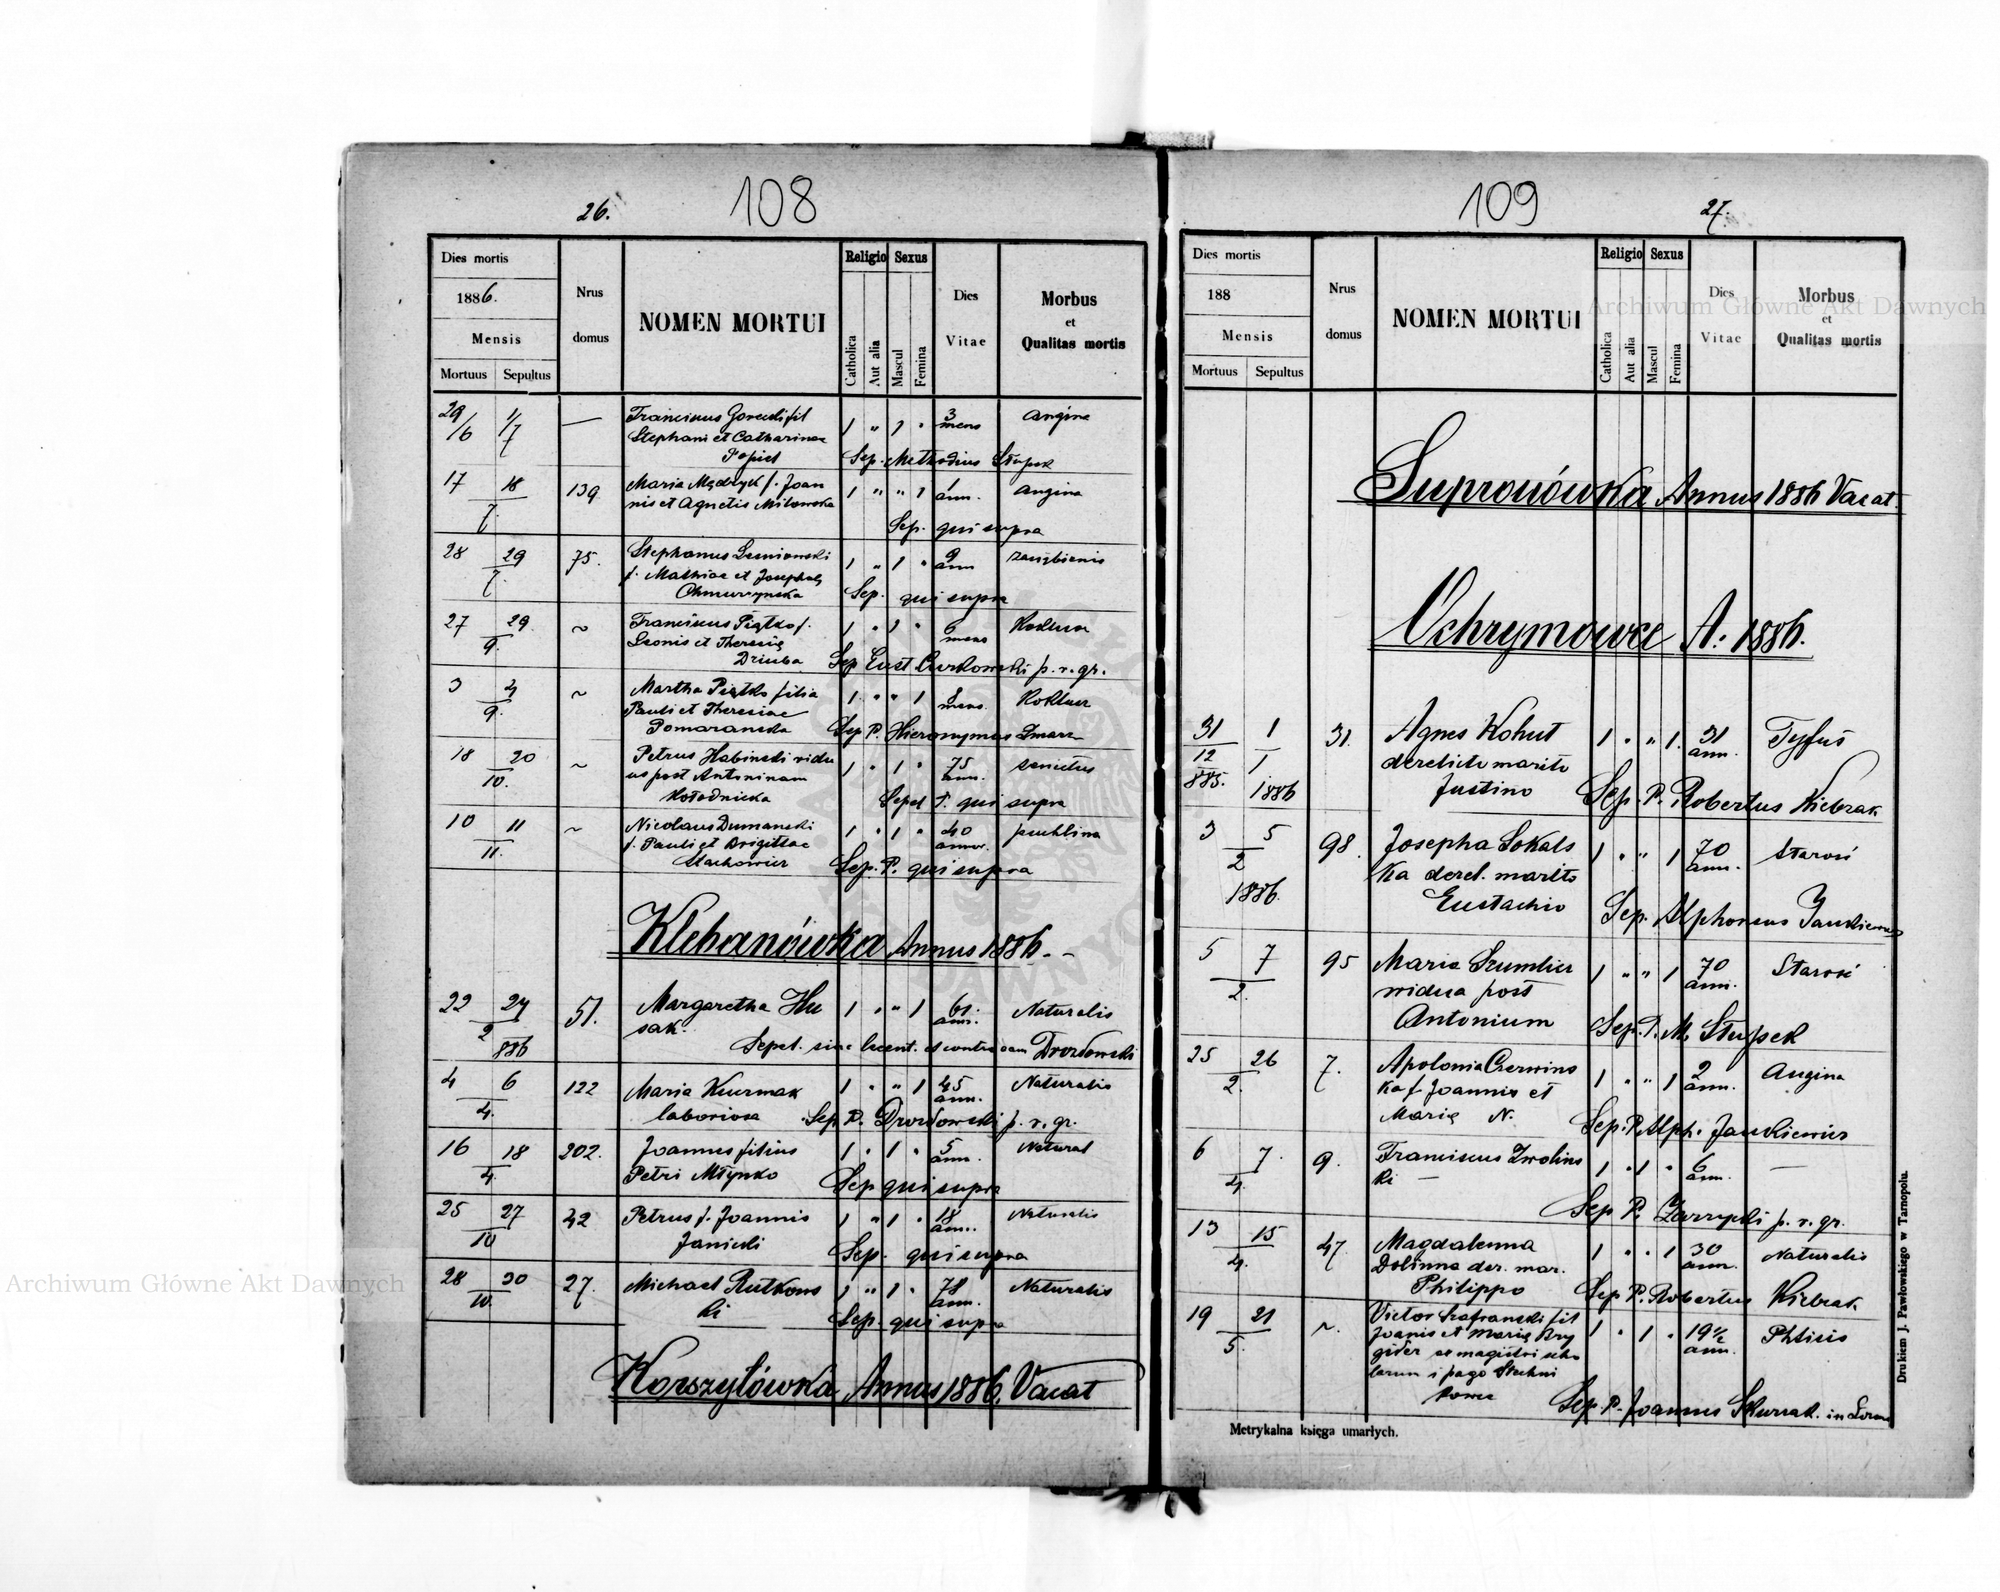 108
26.
Dies mortis
1886.
Mensis
Mortuus Sepultus
Nrus domus
NOMEN MORTUI
Religio
Catholica
Aut alia
Sexus
Mascul
Femina
Dies Vitae
Morbus et Qualitas mortis
29/6 1/7 — Franciscus fil 1 " 1 " 3 mens Angina
Stephani et Catharinae
Popiel Sep. Methodius Słupek
17 18 7. 139 Maria Mędryk f. Joan 1 " " 1 1 ann. Angina
nis et Agnetis
Sep. qui supra
28 29 7. 75. Stephanus 1 " 1 " 2 ann
f. Mathiae et Josephae
Sep. qui supra
27 29 9. ~ Franciscus Piątko f. 1 " 1 " 6 mens Koklusz
Leonis et Theresię
Dziuba Sep Eust p. r. gr.
3 4 9. ~ Martha Piątko filia 1 " " 1 8 mens. Koklusz
Pauli et Theresiae
Pomaranska Sep P. Hieronymus
18 20 10. ~ Petrus Habinski vidu 1 " 1 " 75 ann. senectus
us post Antoninam
Kołodnicka Sepel P. qui supra
10 11 11. ~ Nicolaus Dumanski 1 " 1 " 40 annor. puchlina
f. Pauli et Brigittae
Stachowicz Sep. P. qui supra
Klebanówka Annus 1886.
22 24 2 886 51. Margaretha Hu 1 " " 1 61 ann. Naturalis
sak.
Sepel. sine licent. et contra Drozdowski
4 6 4. 122 Maria Kuzmak 1 " " 1 45 ann. Naturalis
laboriosa Sep. P. Drozdowski p. r. gr.
16 18 4. 202. Joannes filius 1 " 1 " 5 ann. Natural
Petri Młynko Sep qui supra
25 27 10 42 Petrus f. Joannis 1 " 1 " 18 ann. Naturalis
Janicki Sep. qui supra
28 30 10. 27. Michael Rutkows 1 " 1 " 78 ann. Naturalis
ki Sep. qui supra
Korszyłówka Annus 1886. Vacat
109
27.
Dies mortis
188
Mensis
Mortuus Sepultus
Nrus domus
NOMEN MORTUI
Religio
Catholica
Aut alia
Sexus
Mascul
Femina
Dies Vitae
Morbus et Qualitas mortis
Supronówka Annus 1886 Vacat.
Ochrymowce A. 1886.
31 1 31. Agnes Kohut 1 " " 1. 31 ann. Tyfus
12 1 derelicto marito
885. 1886 Justino Sep. P. Robertus Kiebzak
3 5 2 98. Josepha Sokals 1 " " 1 70 ann. Starość
ka derel. marito
1886. Eustachio Sep. Alphonsus Jankiewicz
5 7 2. 95 Maria Szumlicz 1 " " 1 70 ann. Starość
vidua post
Antonium Sep. P. M. Słupek
25 26 2. 7. Apolonia Czerwins 1 " " 1 2 ann. Angina
ka f. Joannis et
Marię N. Sep. P. Alph. Jankiewicz
6 7. 4. 9. Franciscus Zwolins 1 " 1 " 6 ann. —
ki —
Sep P. p. r. gr.
13 15 4. 47. Magdalenna 1 " " 1 30 ann. Naturalis
Dolinna der. mar.
Philippo Sep P. Robertus Kiebzak
19 21 5. ~. Victor Szafranski fil 1 " 1 " 19 1/2 ann. Phtisis
Joanis et Marię Bry
gider et magistri scho
larum i pago
Sep. P. Joannes in
Metrykalna księga umarłych.
Drukiem J. Pawłowskiego w Tarnopolu.
Archiwum Główne Akt Dawnych
Archiwum Główne Akt Dawnych